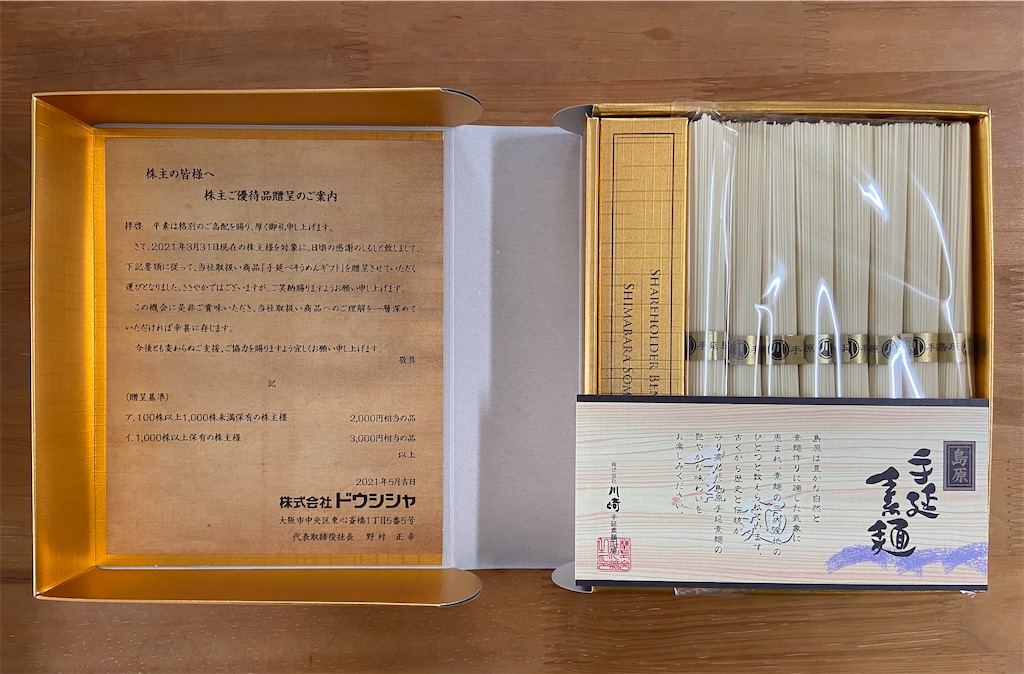 株主の皆様へ
株主ご優待品贈呈のご案内
拝啓　平素は格別のご高配を賜り、厚く御礼申し上げます。
さて、2021年3月31日現在の株主様を対象に、日頃の感謝のしるしと致しまして、
下記要領に従って、当社取扱い商品「手延べそうめんギフト」を贈呈させていただく
運びとなりました。ささやかではございますが、ご笑納賜りますようお願い申し上げます。
この機会に是非ご賞味いただき、当社取扱い商品へのご理解を一層深めて
いただければ幸甚に存じます。
今後とも変わらぬご支援、ご協力を賜りますよう宜しくお願い申し上げます。
敬具
記
(贈呈基準)
ア. 100株以上1,000株未満保有の株主様　2,000円相当の品
イ. 1,000株以上保有の株主様　3,000円相当の品
以上
2021年6月吉日
株式会社 ドウシシャ
大阪市中央区東心斎橋1丁目5番5号
代表取締役社長　野村 正幸
SHAREHOLDER BEN
SHIMABARA SOM
島原
手延
素麺
島原は豊かな自然と
素麺作りに適した気象に
恵まれ、素麺の三大産地の
ひとつと数えられています。
古くから歴史と伝統が
守り
島原手延素麺の
艶やかな味わいを
お楽しみください。
株式会社 川崎手延素麺